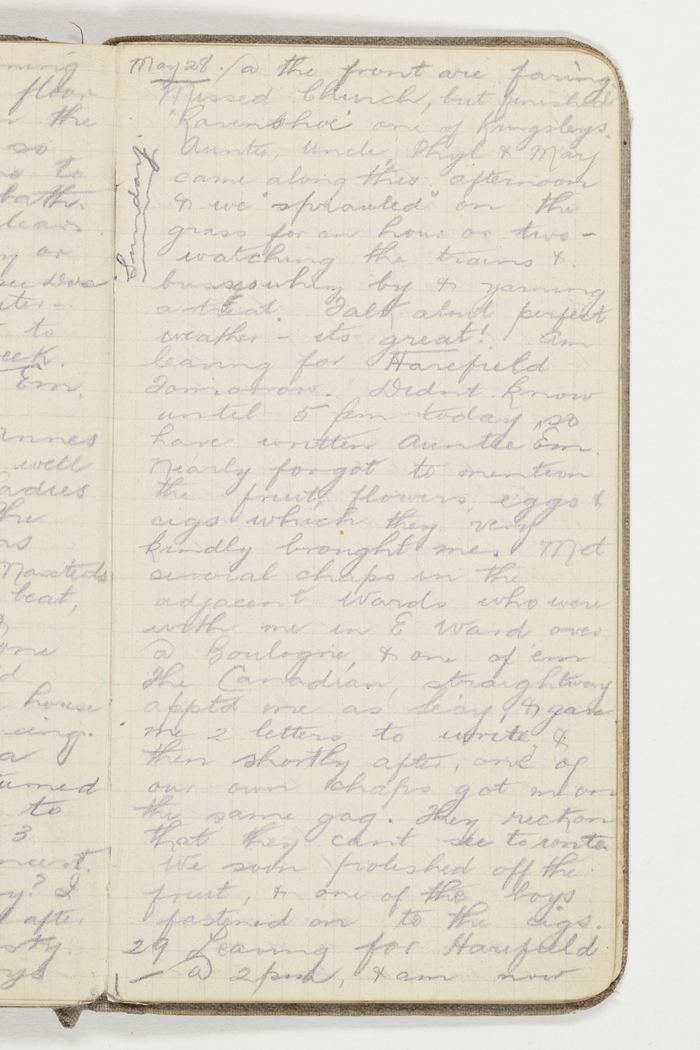 ning
floor
n the
so
to
bath.
lears
y or
see Dos
ter-
to
eek.
Em.
nnes
well
adies
the
as
Masteds
beat,
me
d
house
ding.
a
urned
to
3
ncert.
y? I
after
rty.
ys
May 28. /a the front are faring
Sunday.
Missed Church, but finished
"Ravenshoe" one of Kingsleys.
Aunts, Uncle, Phyl & Mary
came along this afternoon
& we "sprawled" on the
grass for an hour or two -
watching the trains &
buses whiz by & yarning
a treat. Talk about perfect
weather - its great! Am
leaving for Harefield
Tomorrow. Didnt know
until 5 pm today, so
have written Auntie Em.
Nearly forgot to mention
the fruit, flowers, eggs &
cigs which they very
kindly brought me. Met
several chaps in the
adjacent wards who were
with me in E Ward over
a Boulogne, & one of 'em
the Canadian, straightway
apptd me as secy, & gave
me 2 letters to write, &
then shortly after, one of
our own chaps got me on
the same gag. They reckon
that they cant see to write
We soon polished off the
fruit, & one of the boys
fastened on to the cigs.
29 Leaving for Harefield
- a 2 pm, & am now